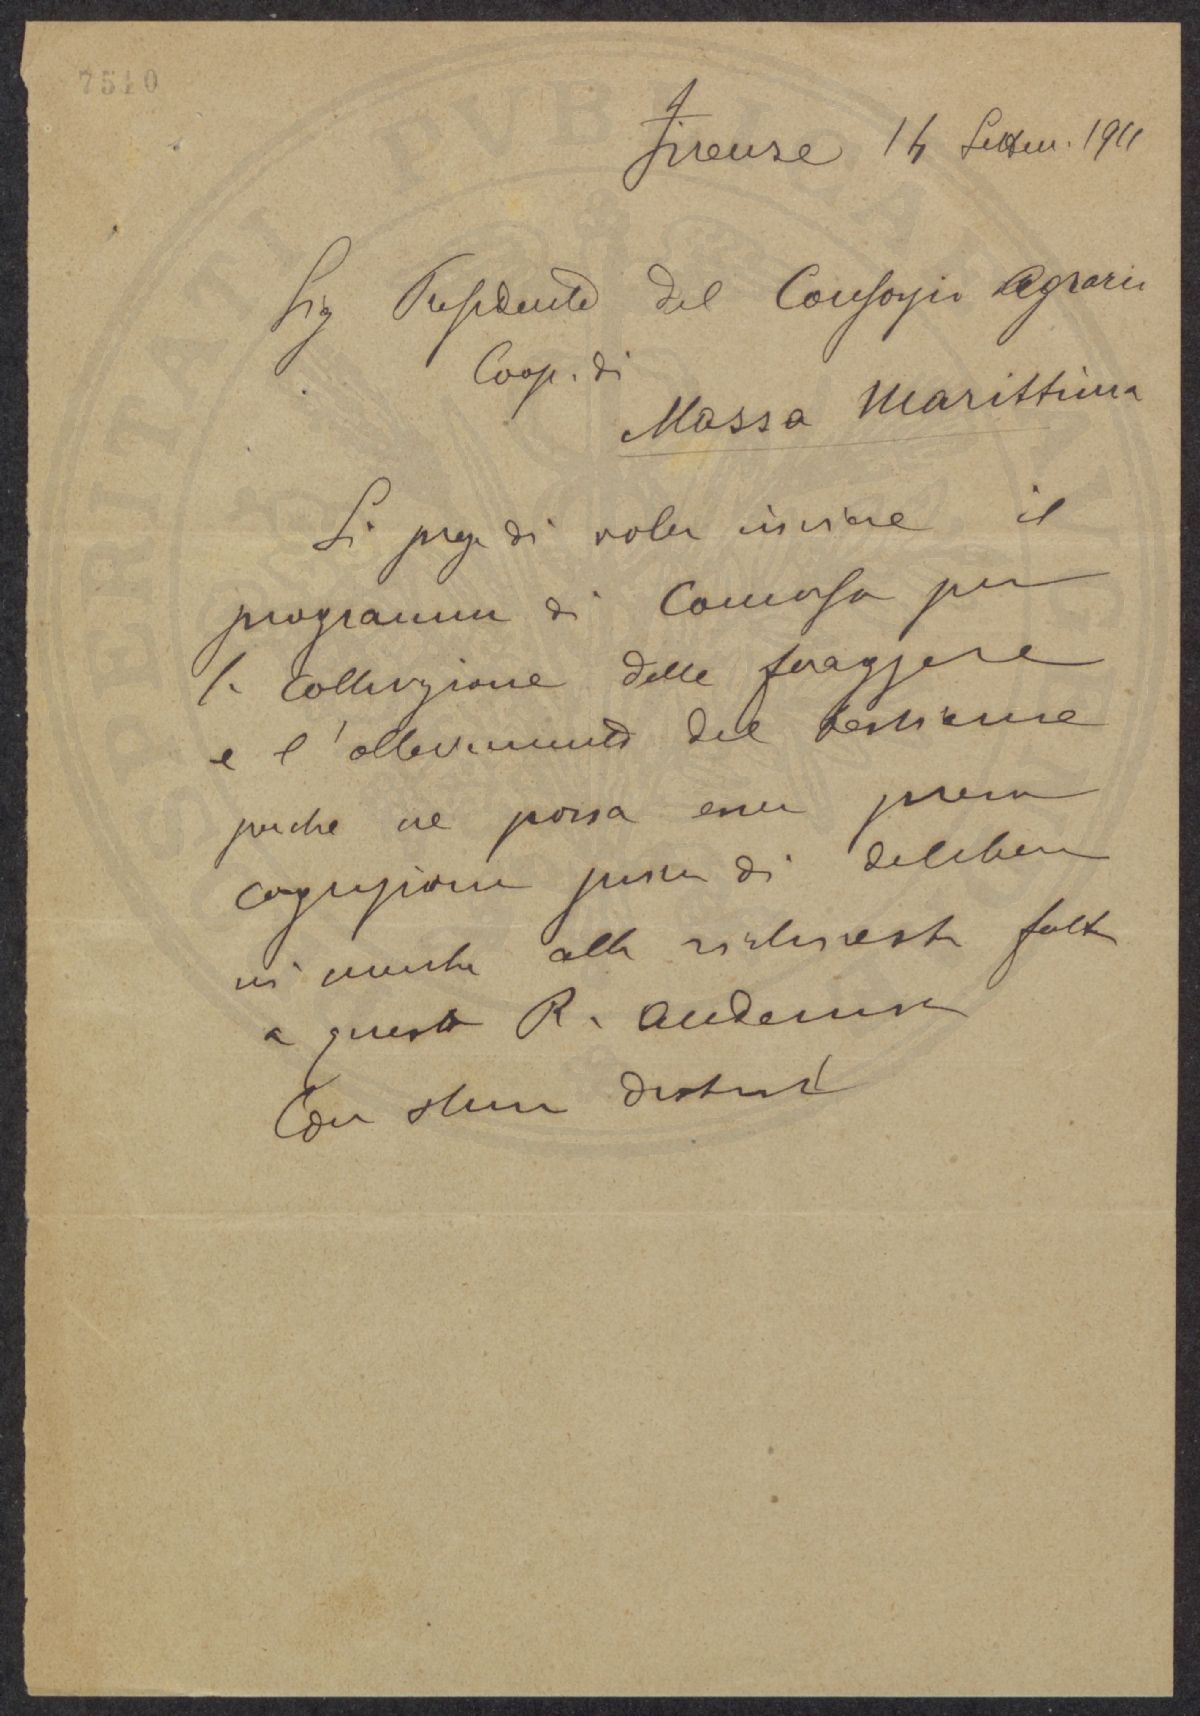 7510
Firenze 14 Settem. 1911
Sig Presidente del Consorzio Agrario
Coop. di
Massa Marittima
Si prega di voler inviare il
programma di Concorso per
la coltivazione delle foraggere
e l'allevamento del bestiame
perche ne possa esser presa
cognizione prima di deliberare
in merito alla richiesta fatta
a questa R. Accademia
Con stima